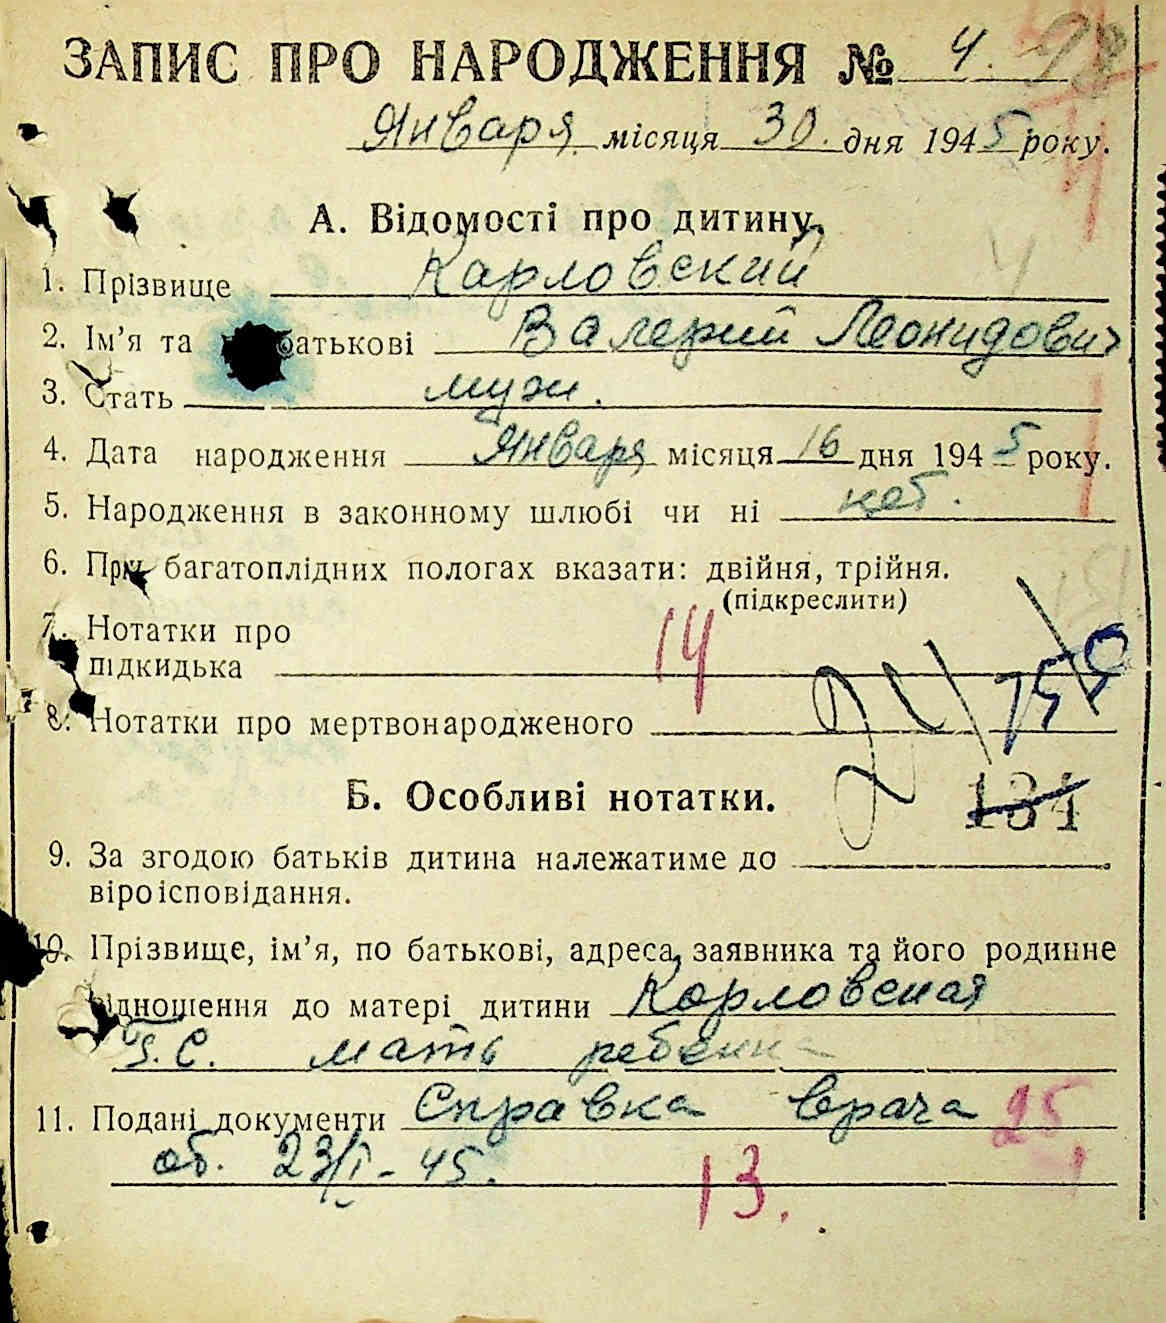 ЗАПИС ПРО НАРОДЖЕННЯ № 4. 98
Января місяця 30. дня 1945 року.
А. Відомості про дитину
1. Прізвище Карловский
2. Ім’я та батькові Валерий Леонидович
3. Стать муж.
4. Дата народження Января місяця 16 дня 1945 року.
5. Народження в законному шлюбі чи ні нет.
6. При багатоплідних пологах вказати: двійня, трійня.
(підкреслити)
7. Нотатки про
підкидька 14
8. Нотатки про мертвонародженого
Б. Особливі нотатки.
134
9. За згодою батьків дитина належатиме до
віроісповідання.
10. Прізвище, ім’я, по батькові, адреса, заявника та його родинне
відношення до матері дитини Карловская
С. мать ребенка
11. Подані документи Справка врача 25
об. 23/I-45. 13.